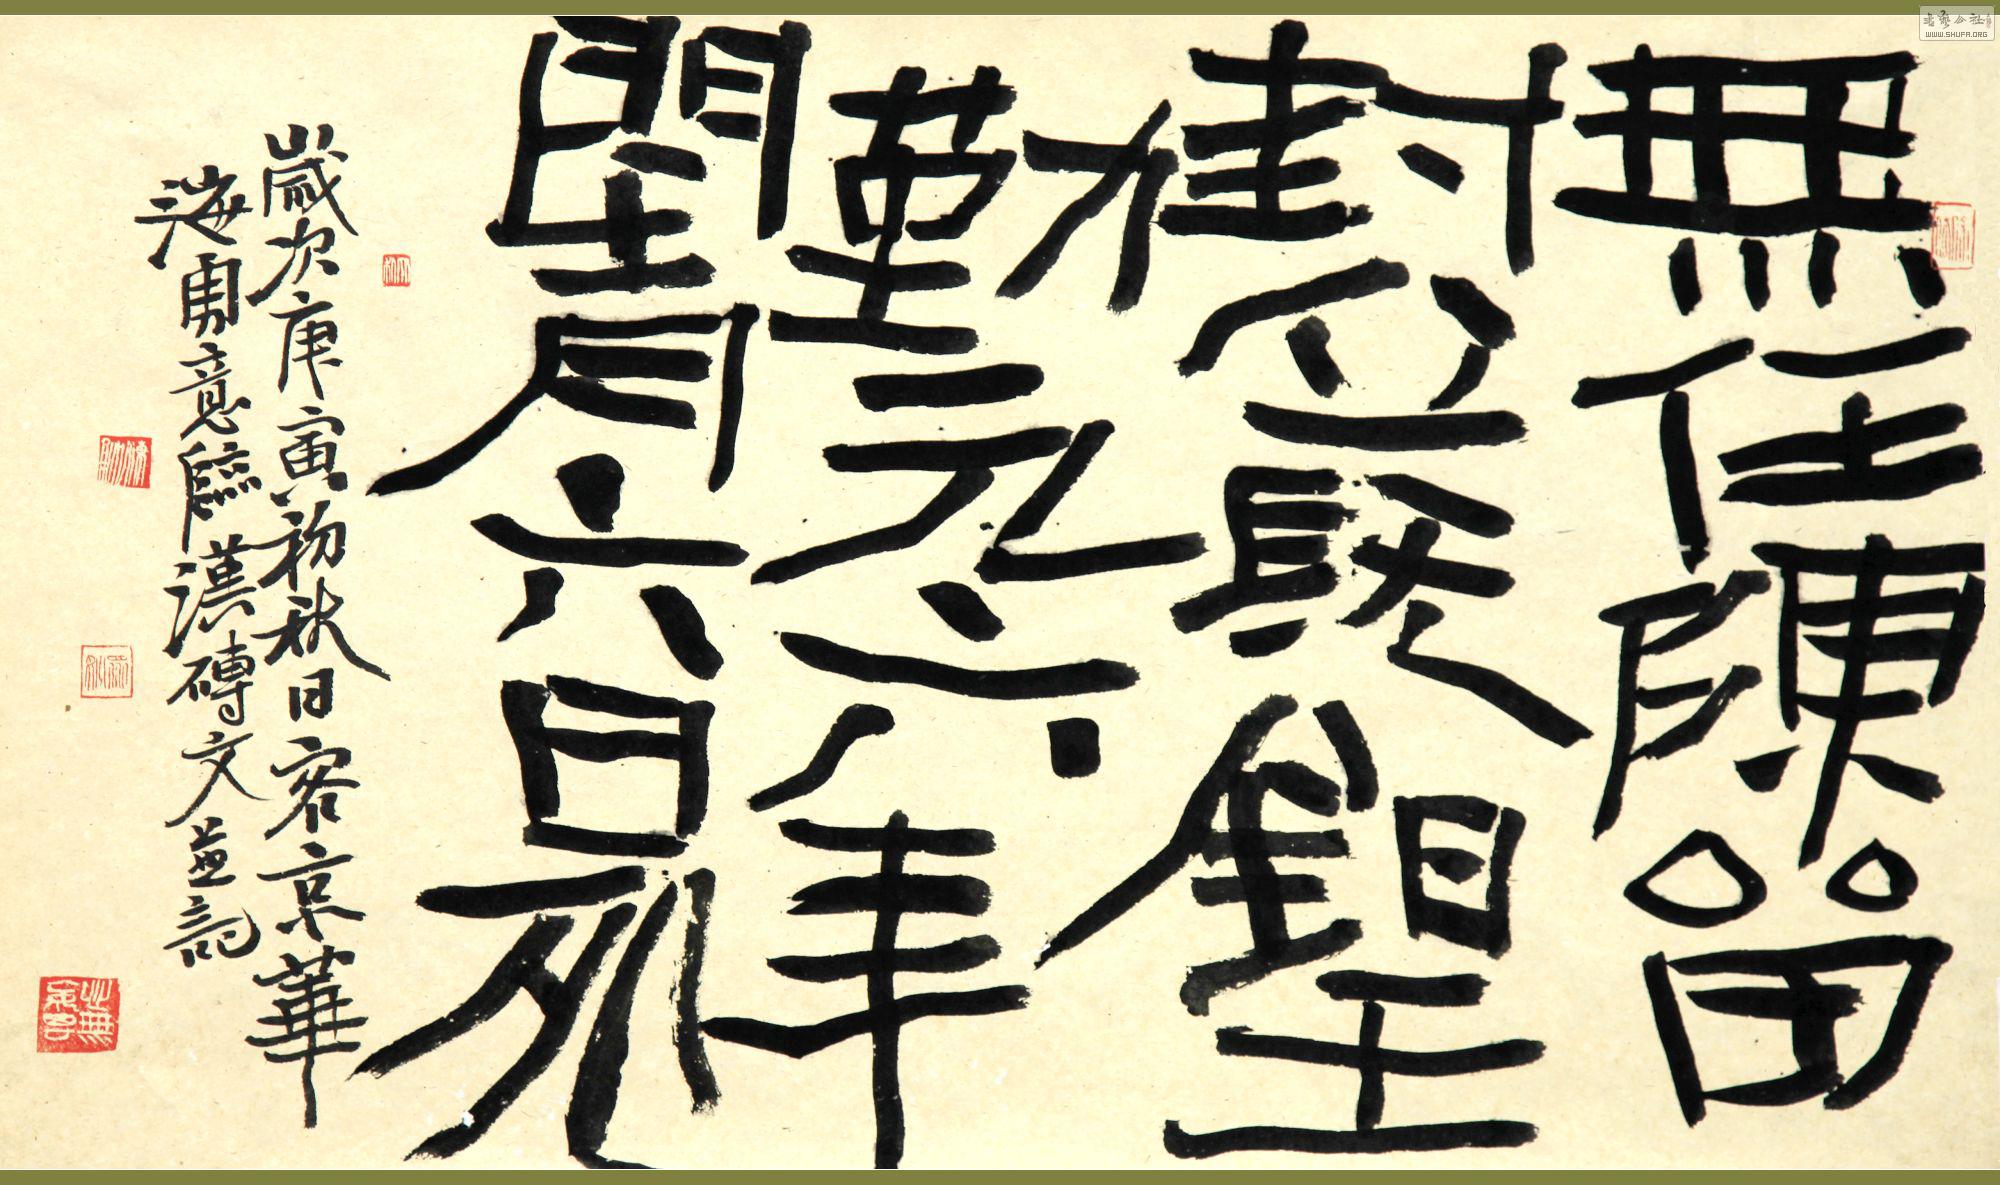 無任陳留
封丘髡鉗
勤永元六年
閏月六日死
歲次庚寅初秋日客京華
海勇意臨漢磚文並記
書藝公社
WWW.SHUFA.ORG